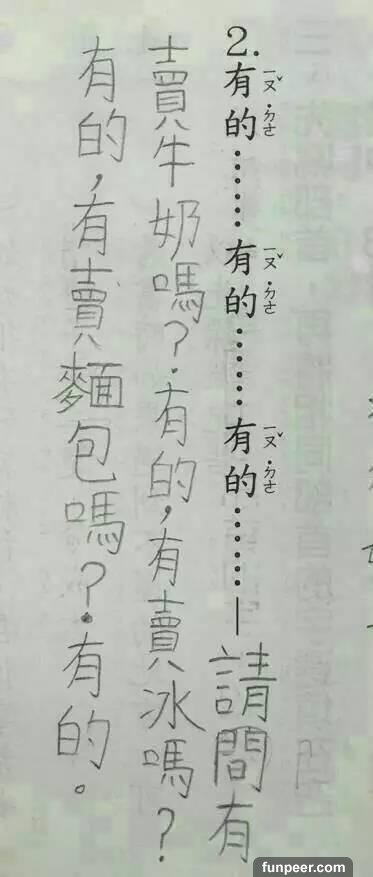 2.有ㄧㄡˇ的˙ㄉㄜ⋯⋯有ㄧㄡˇ的˙ㄉㄜ⋯⋯有ㄧㄡˇ的˙ㄉㄜ⋯⋯—請問有
賣牛奶嗎?有的,有賣冰嗎?
有的,有賣麵包嗎?有的。
funpeer.com